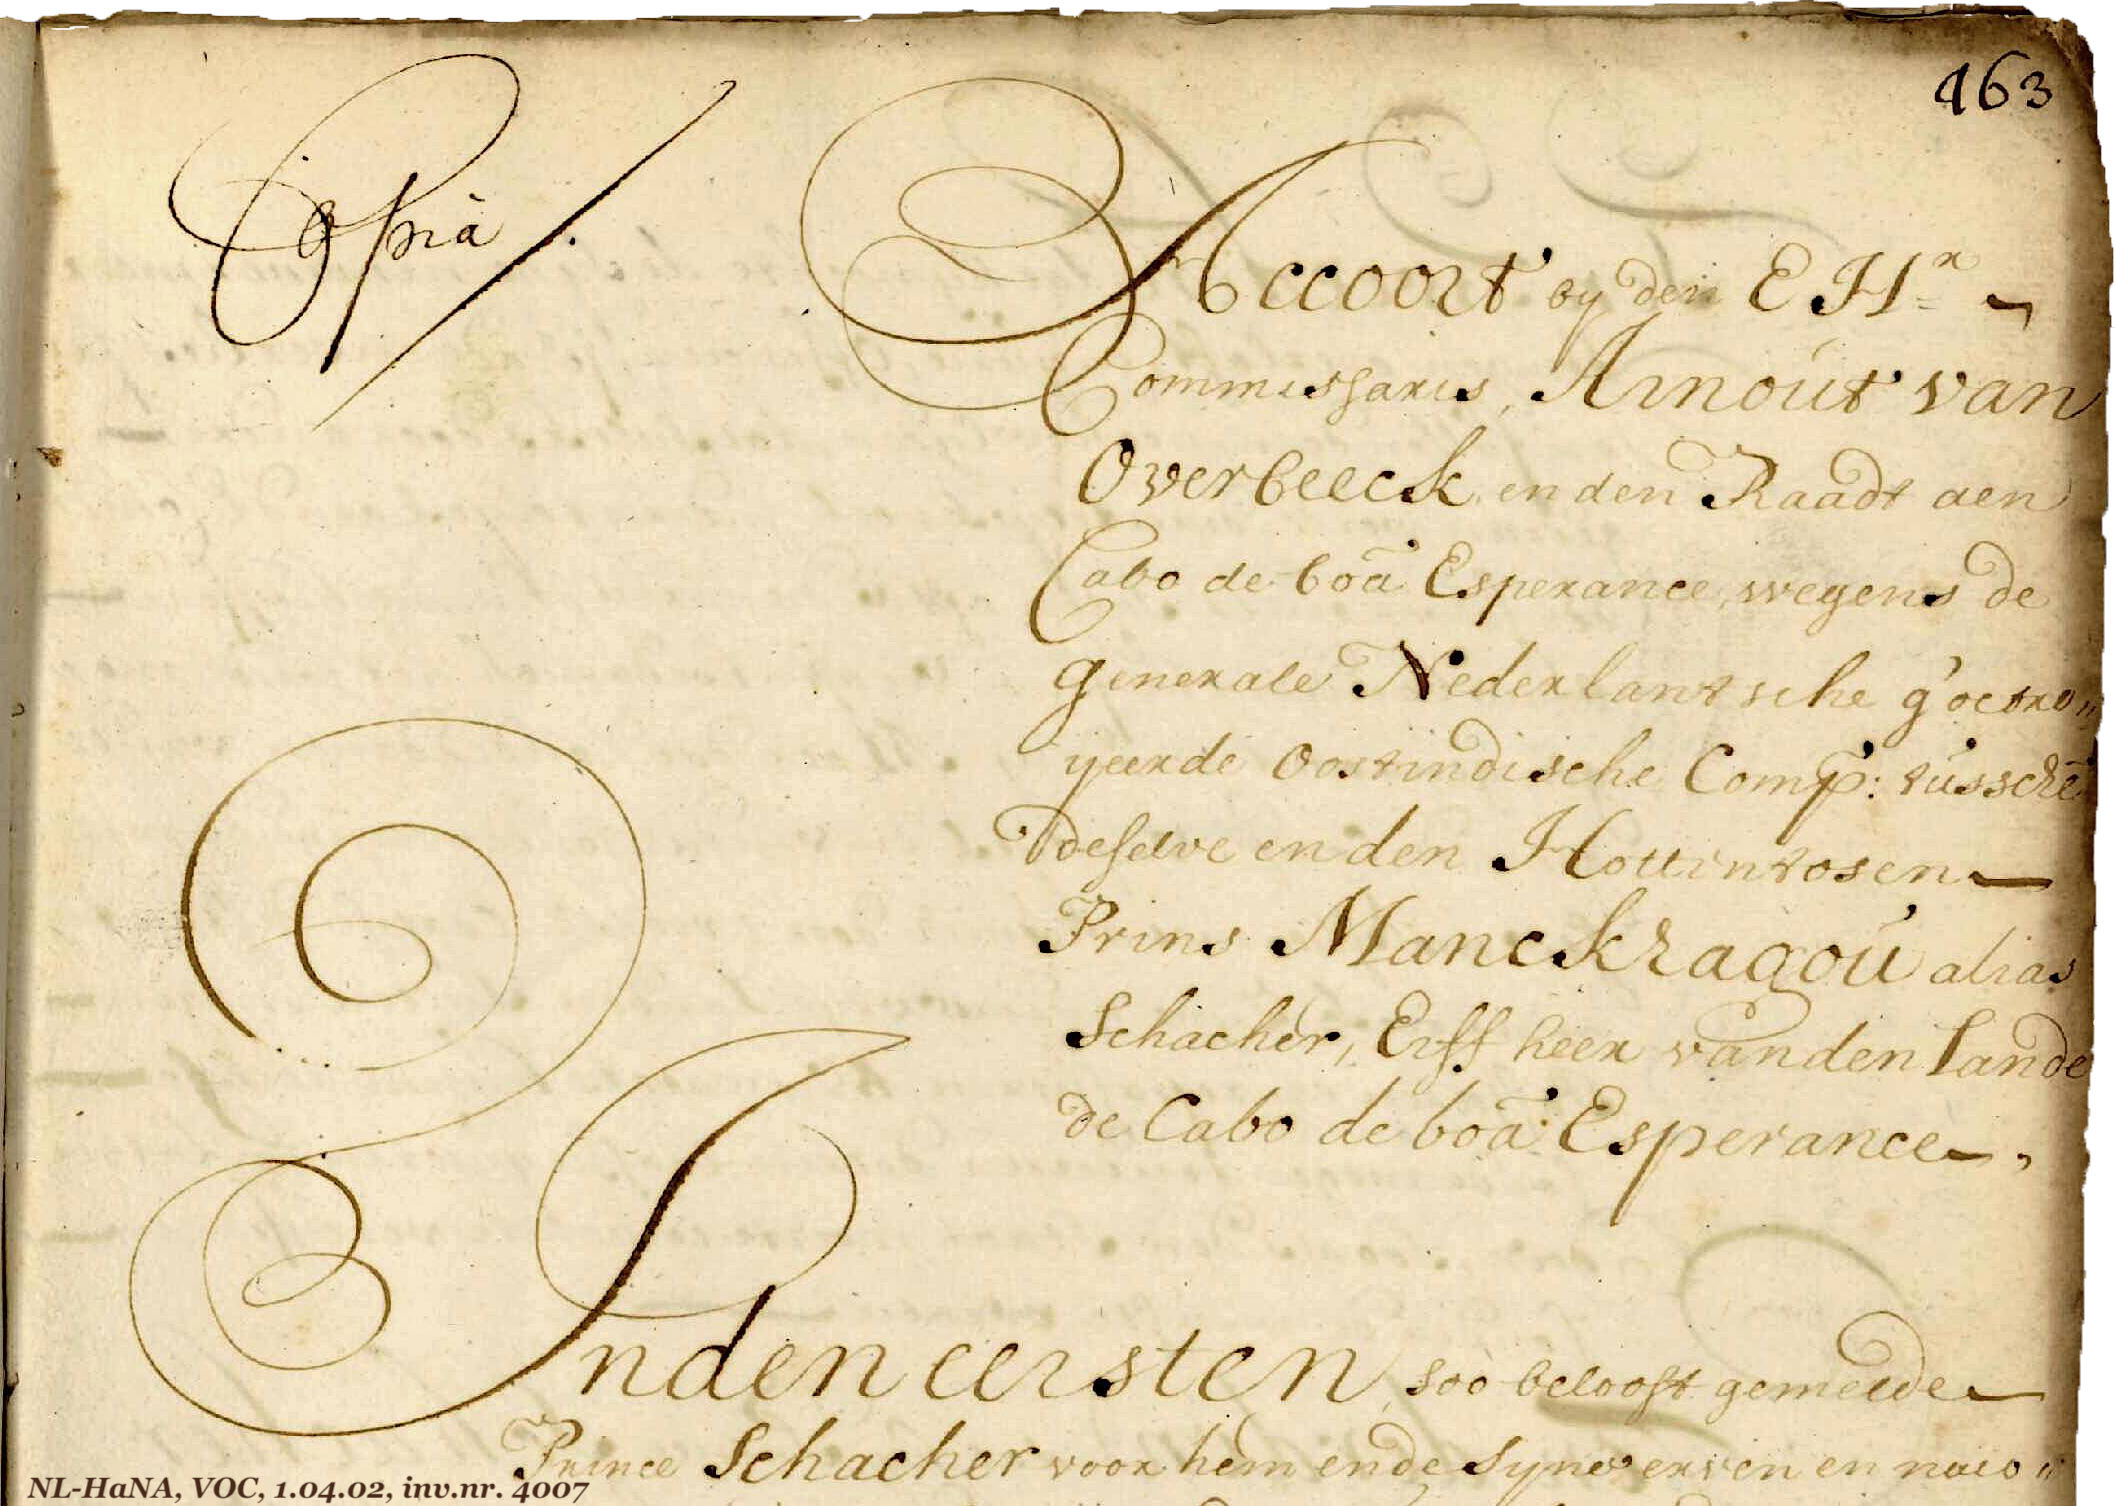 463
Copia
Accoort by den E Hr
Commissaris, Arnout van
Overbeeck en den Raadt aen
Cabo de boã Esperance, wegens de
generale Nederlantsche g'octro„
ijeerde Oostindische Comp: tusschẽ
deselve en den Hottentosen
Prins Manckhagou alias
Schacher, Erff heer van den Lande
de Cabo de boã Esperance
In den eersten, soo belooft gemelde
Prince Schacher voor hem ende syne erven en naco„
NL-HaNA, VOC, 1.04.02, inv.nr. 4007